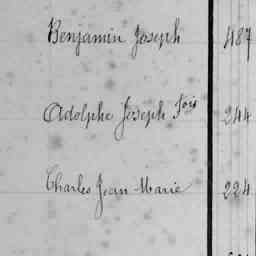 Benjamin Joseph 487
Adolphe Joseph Fois 244
Charles Jean Marie 224